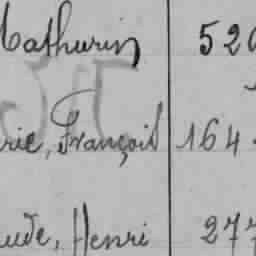 Mathurin 520
rie, François 164
ude, Henri 277